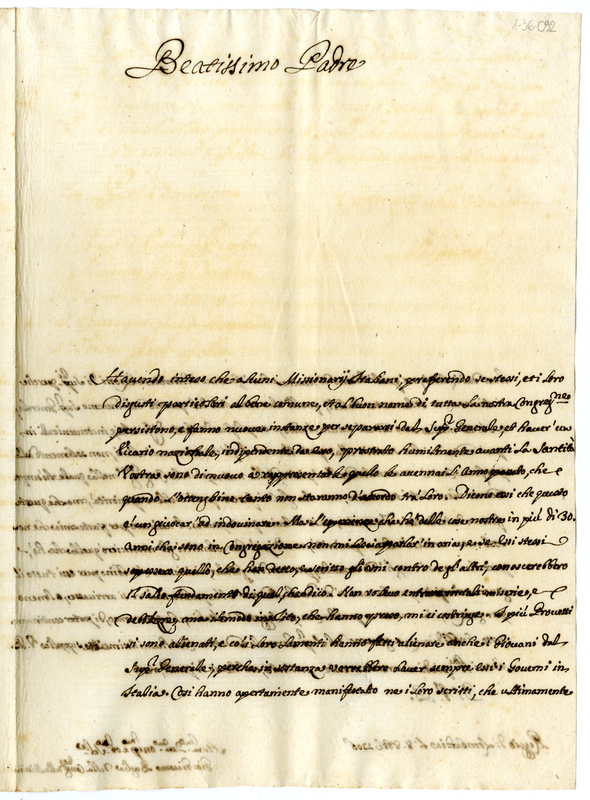 1-36-092
Beatissimo Padre
Havendo inteso che alcuni Missionarij Italiani, prefferendo se stessi, et i loro
disgusti particolari al bene comune, et al buon nome di tutta la nostra Congreg.ne
persistono, e fanno nuove instanze per separarsi dal Sup.r Generale, et haver' un
Vicario nazionale, independente da loro, prostrato humilmente avanti la Santità
Vostra sono di nuovo à rappresentarle quello le accennai l'anno passato, che
quando l'ottenghino tanto non staranno d'accordo trà loro. Dicono essi che questo
é un giuocar' ad indovinare. Ma l'esperienza, che hò delle cose nostre in più di 30.
anni che sono in Congregazione non mi lascia parlar' in aria, e se essi stessi
sapessero quello, che hanno detto, e scritto gli uni contro de gli altri, conoscerebbero
il sodo fondamento di quel, che dico. Non volevo entrare in tali miserie, e
debolezze, ma il modo insolito, che hanno preso, mi ci costringe. I più Provetti
si sono alienati, e co' i loro lamenti hanno fatti alienare anche i Giovani dal
Sup.r Generale, perche in sostanza vorrebbero haver sempre essi i Governi in
Italia. Così hanno apertamente manifestato ne i loro scritti, che ultimamente